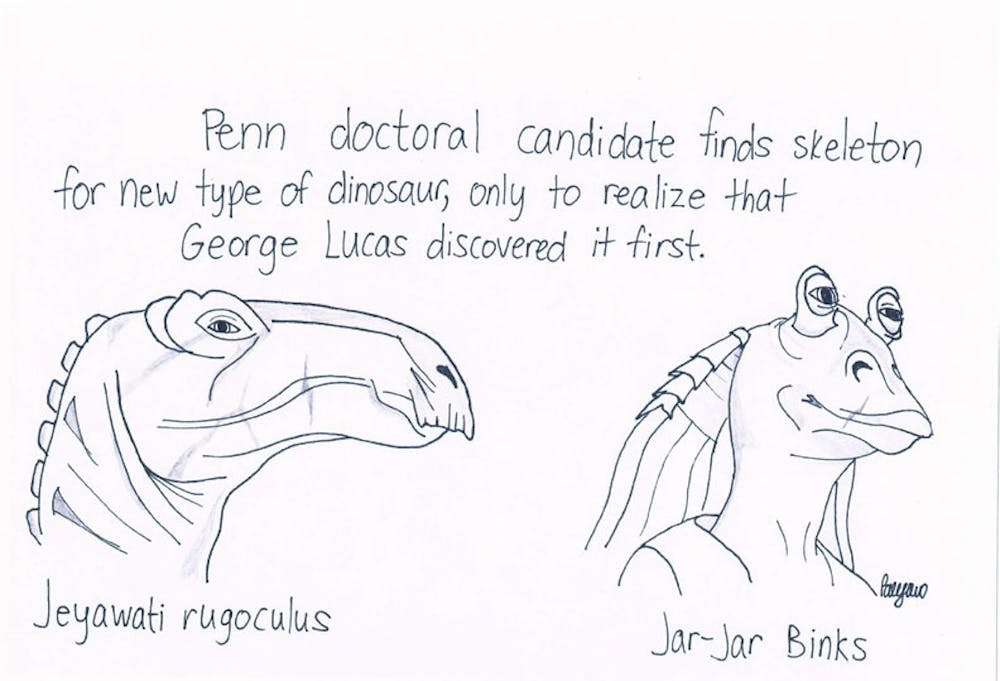 Penn doctoral candidate finds skeleton
for new type of dinosaur, only to realize that
George Lucas discovered it first.
Jeyawati rugoculus
Jar-Jar Binks